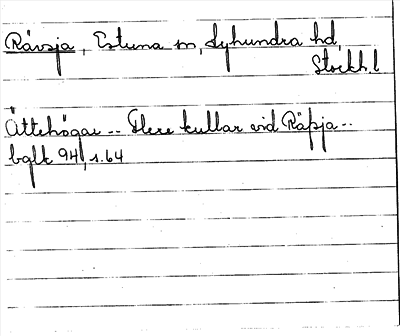 Råvsja, Estuna sn, Lyhundra hd,
Stockh. l
Ättehögar -- Flere kullar vid Råpsja --
bglk 94, s. 64